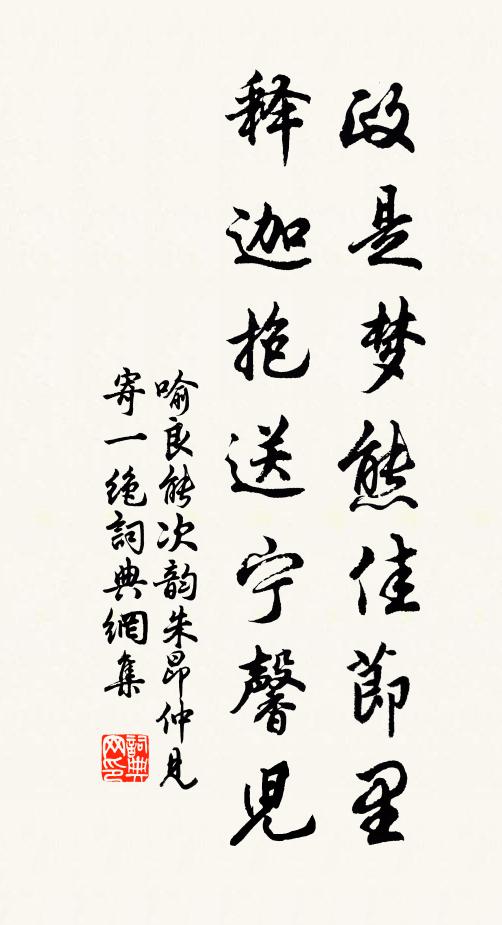 政是梦熊佳節里
释迦抱送宁馨児
喻良能次韵朱昂仲見
寄一绝詞典網集
詞典網印